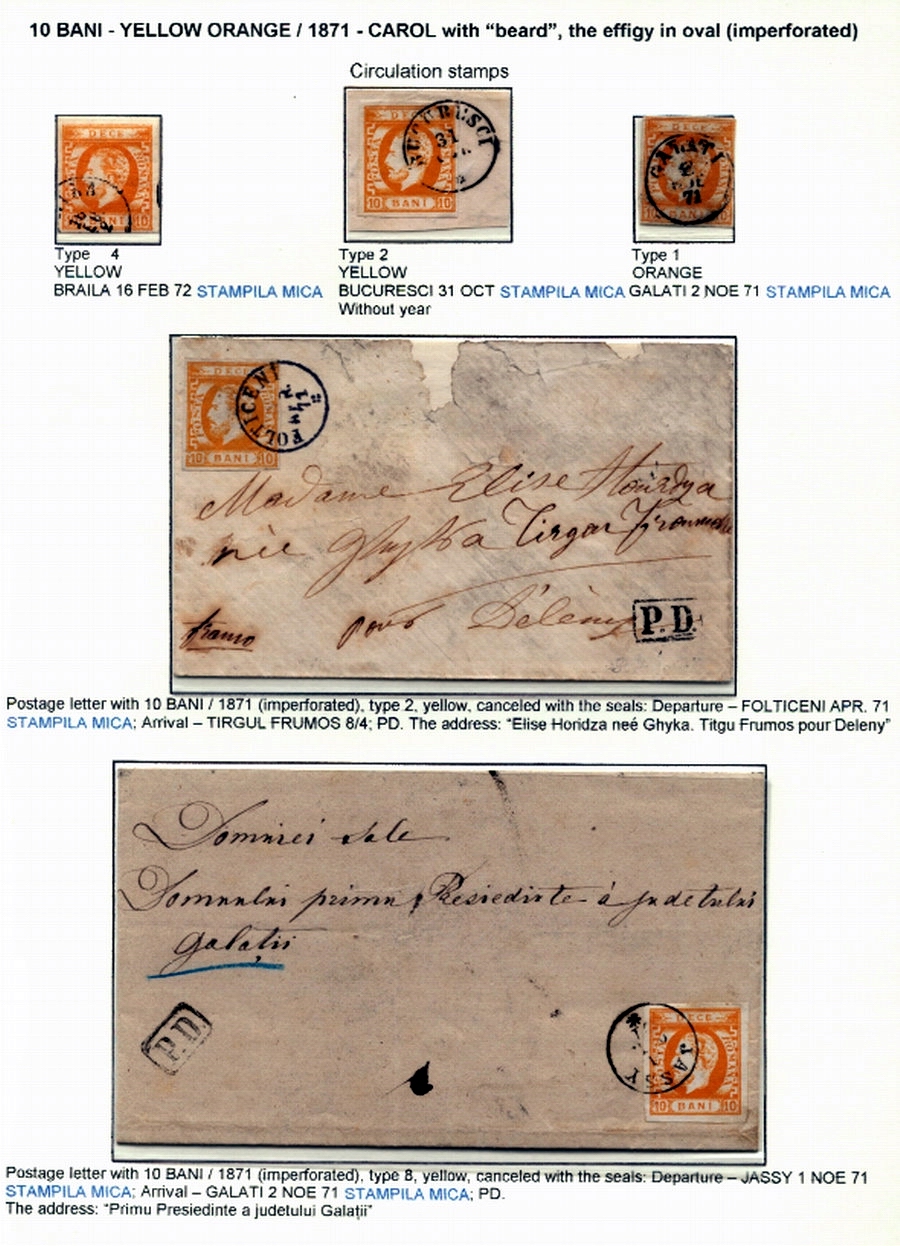 10 BANI - YELLOW ORANGE / 1871 - CAROL with “beard”, the effigy in oval (imperforated)
Circulation stamps
DECE
BANI 10
Type 4
YELLOW
BRAILA 16 FEB 72 STAMPILA MICA
DECE
BUCURESCI
31
10 BANI
Type 2
YELLOW
BUCURESCI 31 OCT STAMPILA MICA
Without year
DECE
GALATI
2
NOE
71
10 BANI 10
Type 1
ORANGE
GALATI 2 NOE 71 STAMPILA MICA
DECE
ROMANA
10 BANI 10
FOLTICENI
71
Madame Elise Hourdza
née Ghyka Tirgar Froumoche
franco pour Délény
P.D.
Postage letter with 10 BANI / 1871 (imperforated), type 2, yellow, canceled with the seals: Departure – FOLTICENI APR. 71
STAMPILA MICA; Arrival – TIRGUL FRUMOS 8/4; PD. The address: “Elise Horidza neé Ghyka. Titgu Frumos pour Deleny”
Domniei sale
Domnului primu Presiedinte à judetului
Galații
P.D.
JASSY
DECE
ROMANA
10 BANI 10
Postage letter with 10 BANI / 1871 (imperforated), type 8, yellow, canceled with the seals: Departure – JASSY 1 NOE 71
STAMPILA MICA; Arrival – GALATI 2 NOE 71 STAMPILA MICA; PD.
The address: “Primu Presiedinte a judetului Galații”